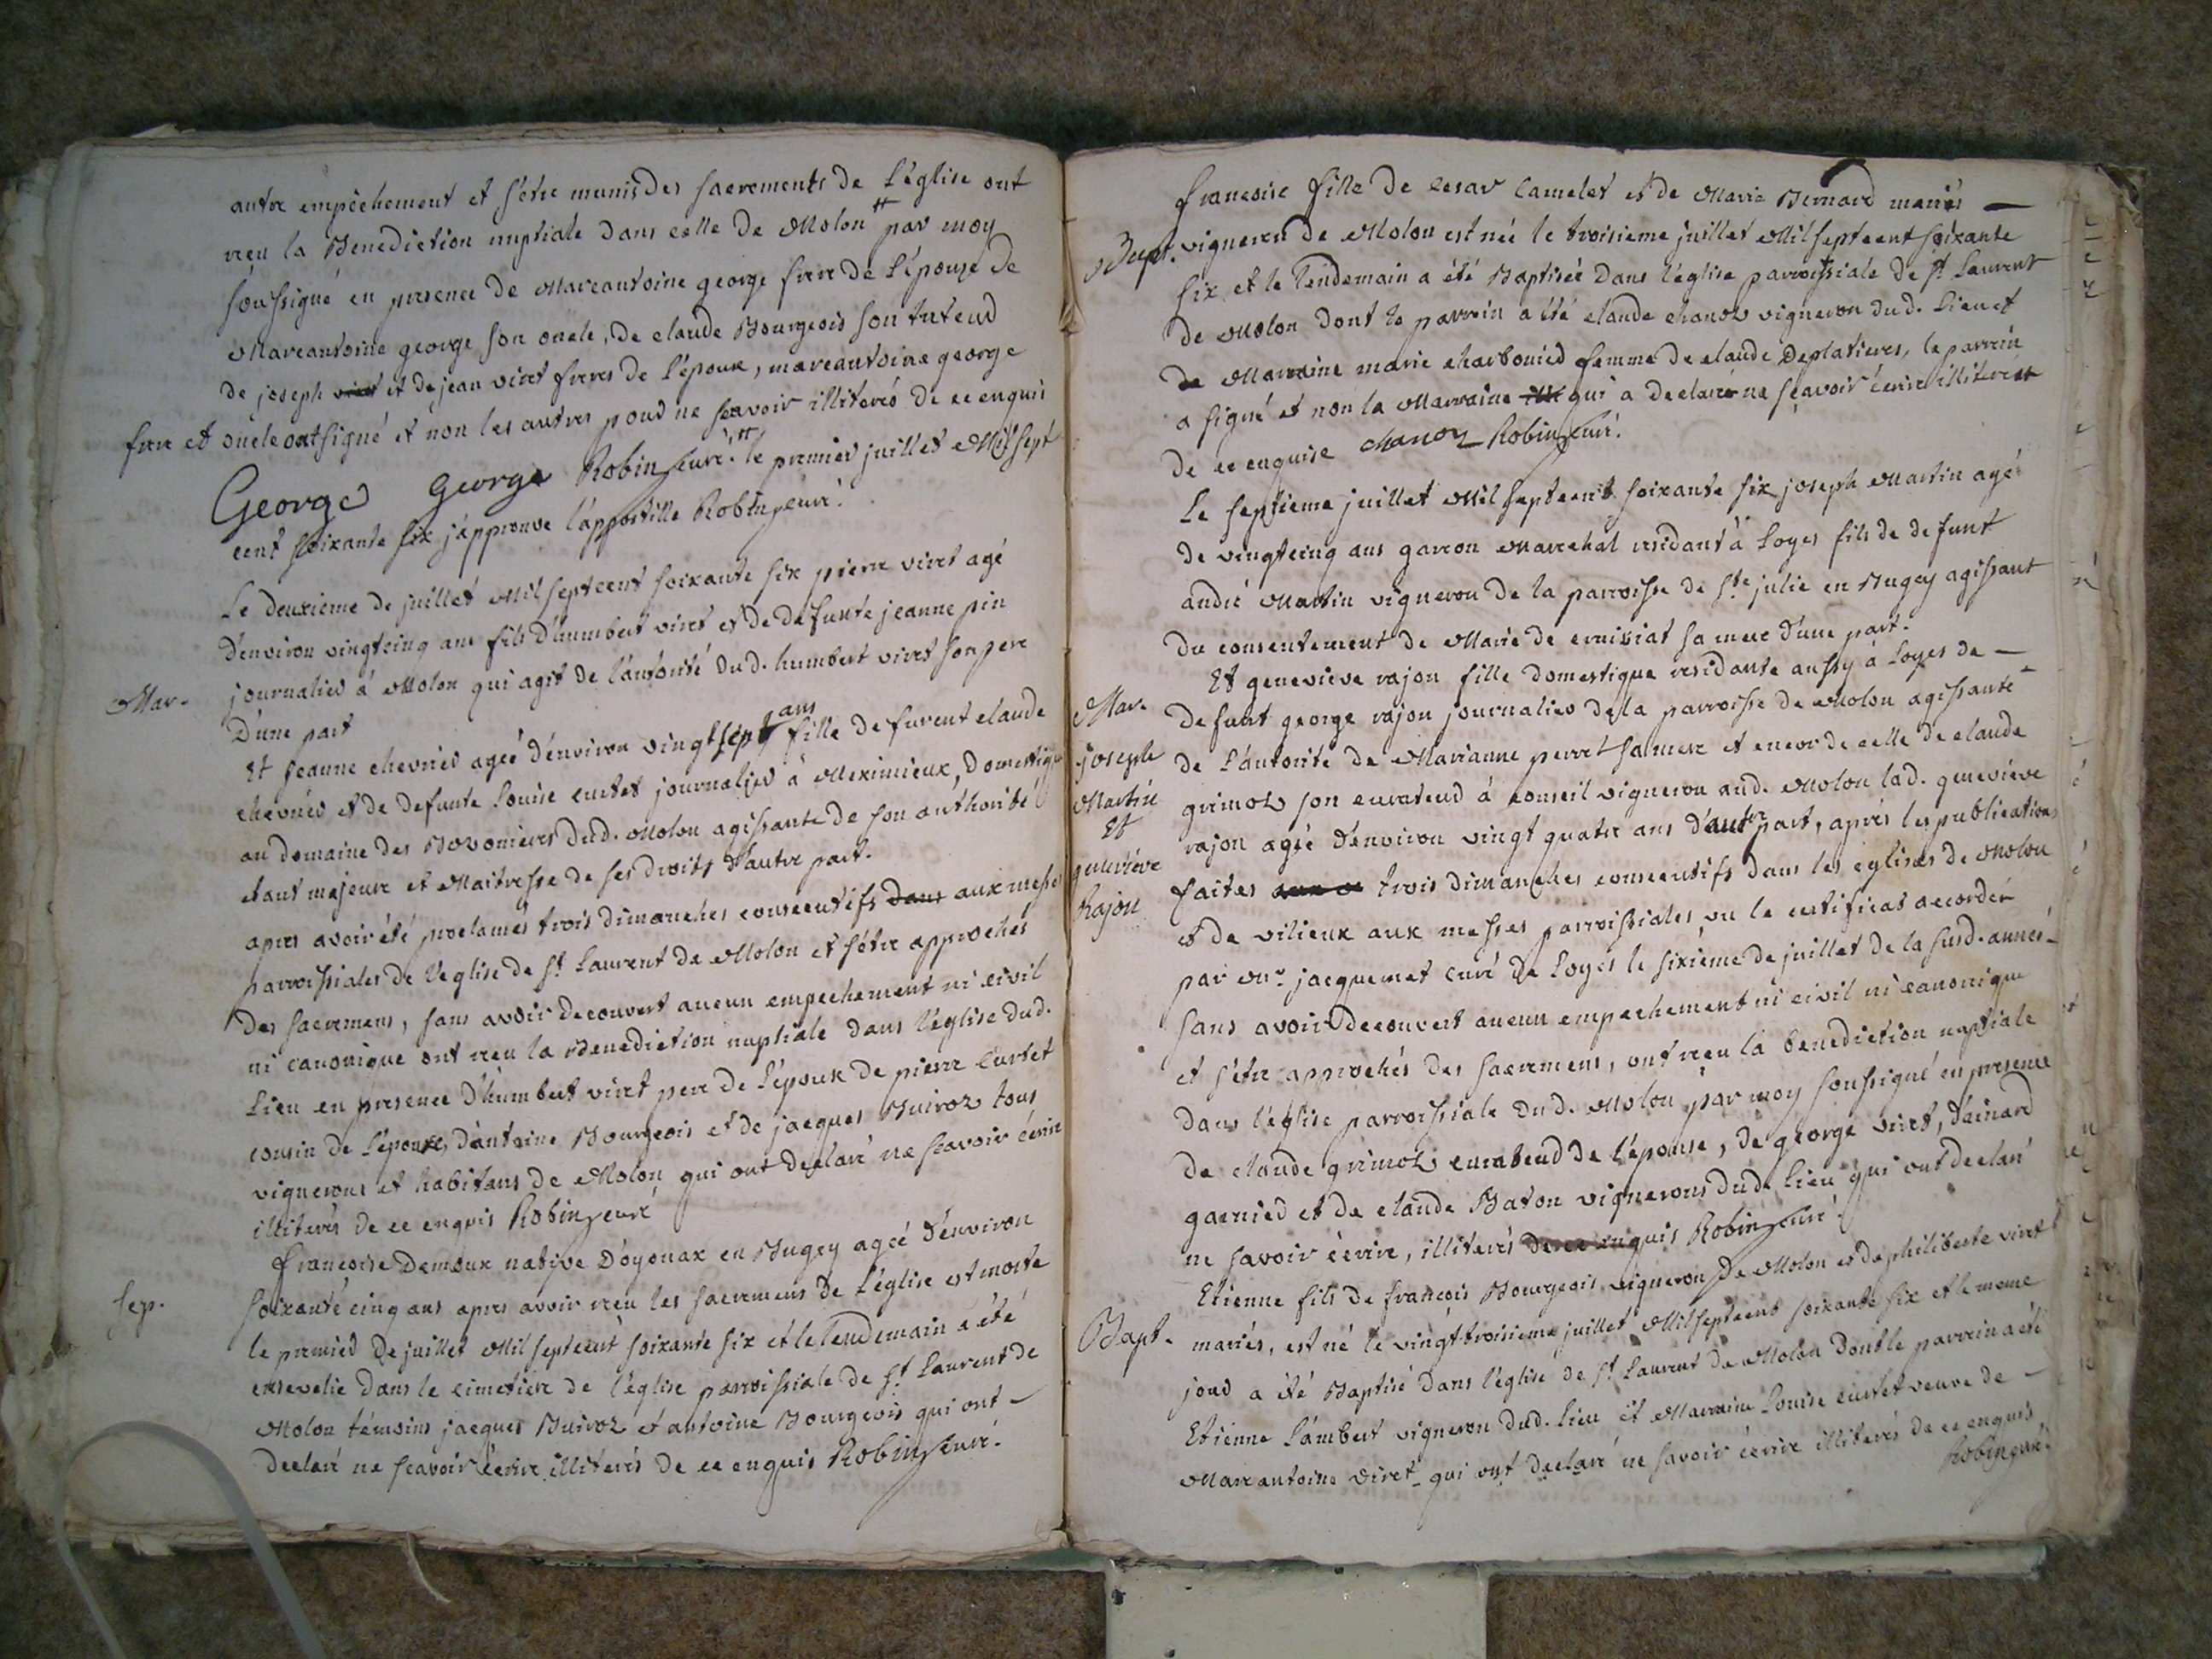 autre empêchement et s'être munis des sacrements de L'église ont
reçu la Benediction nuptiale dans celle de Molon # par moy
soussigné en presence de Marcantoine george frere de L'épouze de
Marcantoine george son oncle, de claude Bourgeois son tuteur
de joseph et de jean viret freres de l'époux, marcantoine george
frere et oncle ont signé et non les autres pour ne sçavoir illiterés de ce enquis
George George Robin curé. # le premier juillet Mil sept
cent soixante six j'approuve l'appostille Robin curé.
Le deuxieme de juillet Mil septcent soixante six pierre viret agé
d'environ vingtcinq ans fils d'humbert viret et de defunte jeanne pin
Mar. journalier à Molon qui agit de l'autorité dud. humbert viret son pere
D'une part
Et jeanne chevrier agée d'environ vingt sept ans fille de furent claude
chevrier et de defunte Louise curtet journalier à Meximieux, Domestique
au domaine des Bovonieres dud. Molon agissante de son authorité
etant majeure et Maitresse de ses droits d'autre part.
apres avoir été proclamés trois dimanches consecutifs dans aux messes
parroissiales de l'eglise de St Laurent de Molon et s'être approchés
Des sacremens, sans avoir decouvert aucun empechement ni civil
ni canonique ont reçu la Benediction nuptiale dans l'eglise dud.
Lieu en presence d'humbert viret pere de L'époux de pierre Curtet
cousin de L'épouze, d'antoine Bourgeois et de jacques Buiroz tous
vignerons et habitans de Molon qui ont declaré ne sçavoir écrire
illiterés de ce enquis Robin curé
françoise Demoux native D'oyonax en Bugey agée d'environ
Sep. soixante cinq ans apres avoir reçu les sacremens de L'église est morte
le premier de juillet Mil septcent soixante six et le lendemain a été
ensevelie dans le cimetiere de l'église parroissiale de St Laurent de
Molon témoins jacques Buiroz et antoine Bourgeois qui ont
declaré ne sçavoir écrire illiterés de ce enquis Robin curé.
françoise fille de cesar Camelet et de Marie Bernard mariés
Bapt. vigneron de Molon est née le troisieme juillet Mil septcent soixante
six et le lendemain a été Baptisée dans l'église parroissiale de St Laurent
de Molon dont le parrein a été claude chanoz vigneron dud. Lieu et
de Marraine marie charbonier femme de claude Deplatieres, le parrein
a signé et non la Marraine qui a declaré ne sçavoir écrire illiterée
de ce enquise chanoz Robin curé.
Le septieme juillet Mil septcent soixante six joseph Martin agé
de vingtcinq ans garcon Marechal residant à Loyes fils de defunt
andré Martin vigneron de la parroisse de Ste julie en Bugey agissant
du consentement de Marie de cruisiat sa mere d'une part.
Et genevieve rajon fille domestique residante aussy à Loyes de
Mar. defunt george rajon journalier de la parroisse de Molon agissante
joseph de L'autorité de Marianne perret sa mere et encor de celle de claude
Martin grimoz son curateur à conseil vigneron aud. Molon lad. genevieve
Et rajon agée d'environ vingt quatre ans d'autre part, après les publications
genevieve faites trois dimanches consecutifs dans les eglises de Molon
Rajon et de vilieux aux messes parroissiales, vu le certificat accordé
par Mr. jacquemet curé de Loyes le sixieme de juillet de la susd. année
sans avoir decouvert aucun empechement ni civil ni canonique
et s'être approchés des sacremens, ont reçu la benediction nuptiale
dans l'église parroissiale dud. Molon par moy soussigné en presence
de claude grimoz curateur de l'épouse, de george viret, d'ainard
garnier et de claude Baton vignerons dud. Lieu qui ont declaré
ne savoir écrire, illiterés de ce enquis Robin curé.
Etienne fils de francois Bourgeois vigneron de Molon et de philiberte viret
Bapt. mariés, est né le vingt troisieme juillet Mil septcent soixante six et le meme
jour a été Baptisé dans l'église de St Laurent de Molon dont le parrein a été
Etienne Lambert vigneron dud. Lieu et Marraine Louise curtet veuve de
Marcantoine viret qui ont declaré ne savoir écrire illiterés de ce enquis
Robin curé.